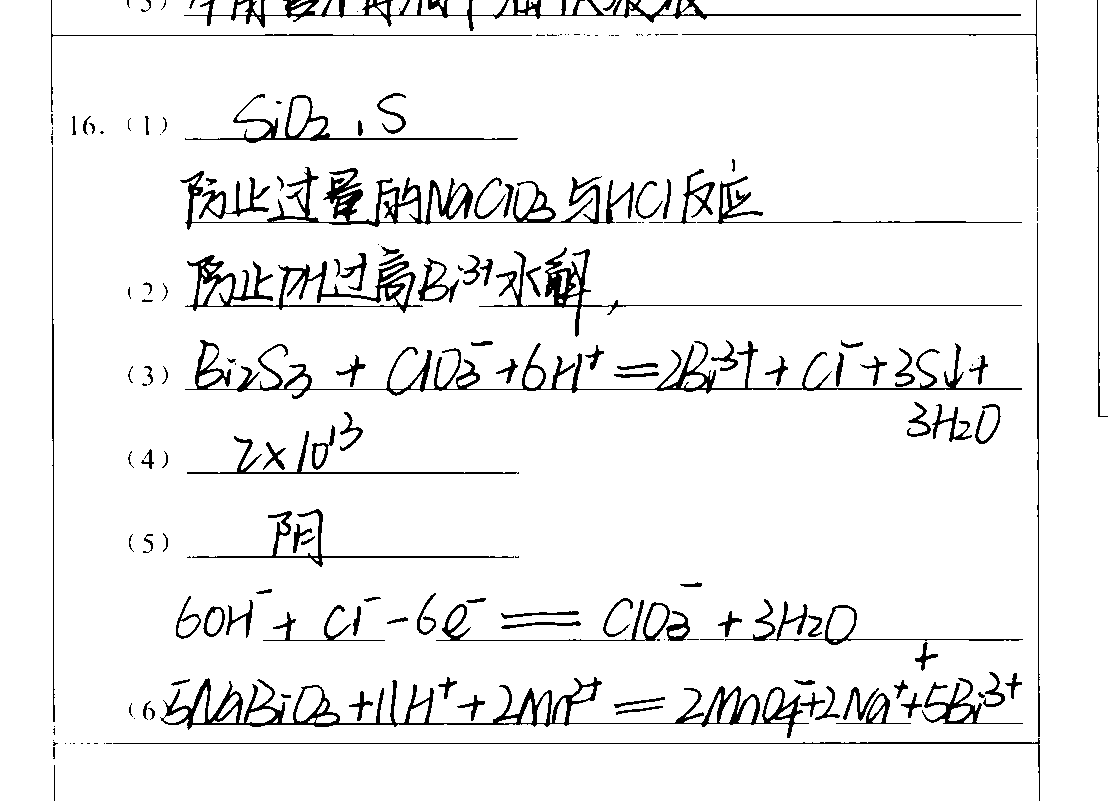 16. (1) SiO₂,S
防止过量的NaClO₃与HCl反应
(2) 防止pH过高Bi³⁺水解,
(3) Bi₂S₃ + ClO₃⁻+6H⁺ =2Bi³⁺+Cl⁻+3S↓+
3H₂O
(4) 2×10¹³
(5) 阴
6OH⁻+ Cl⁻-6e⁻ == ClO₃⁻+3H₂O
+
(6) 5NaBiO₃+11H⁺+2Mn²⁺ = 2MnO₄⁻+2Na⁺+5Bi³⁺